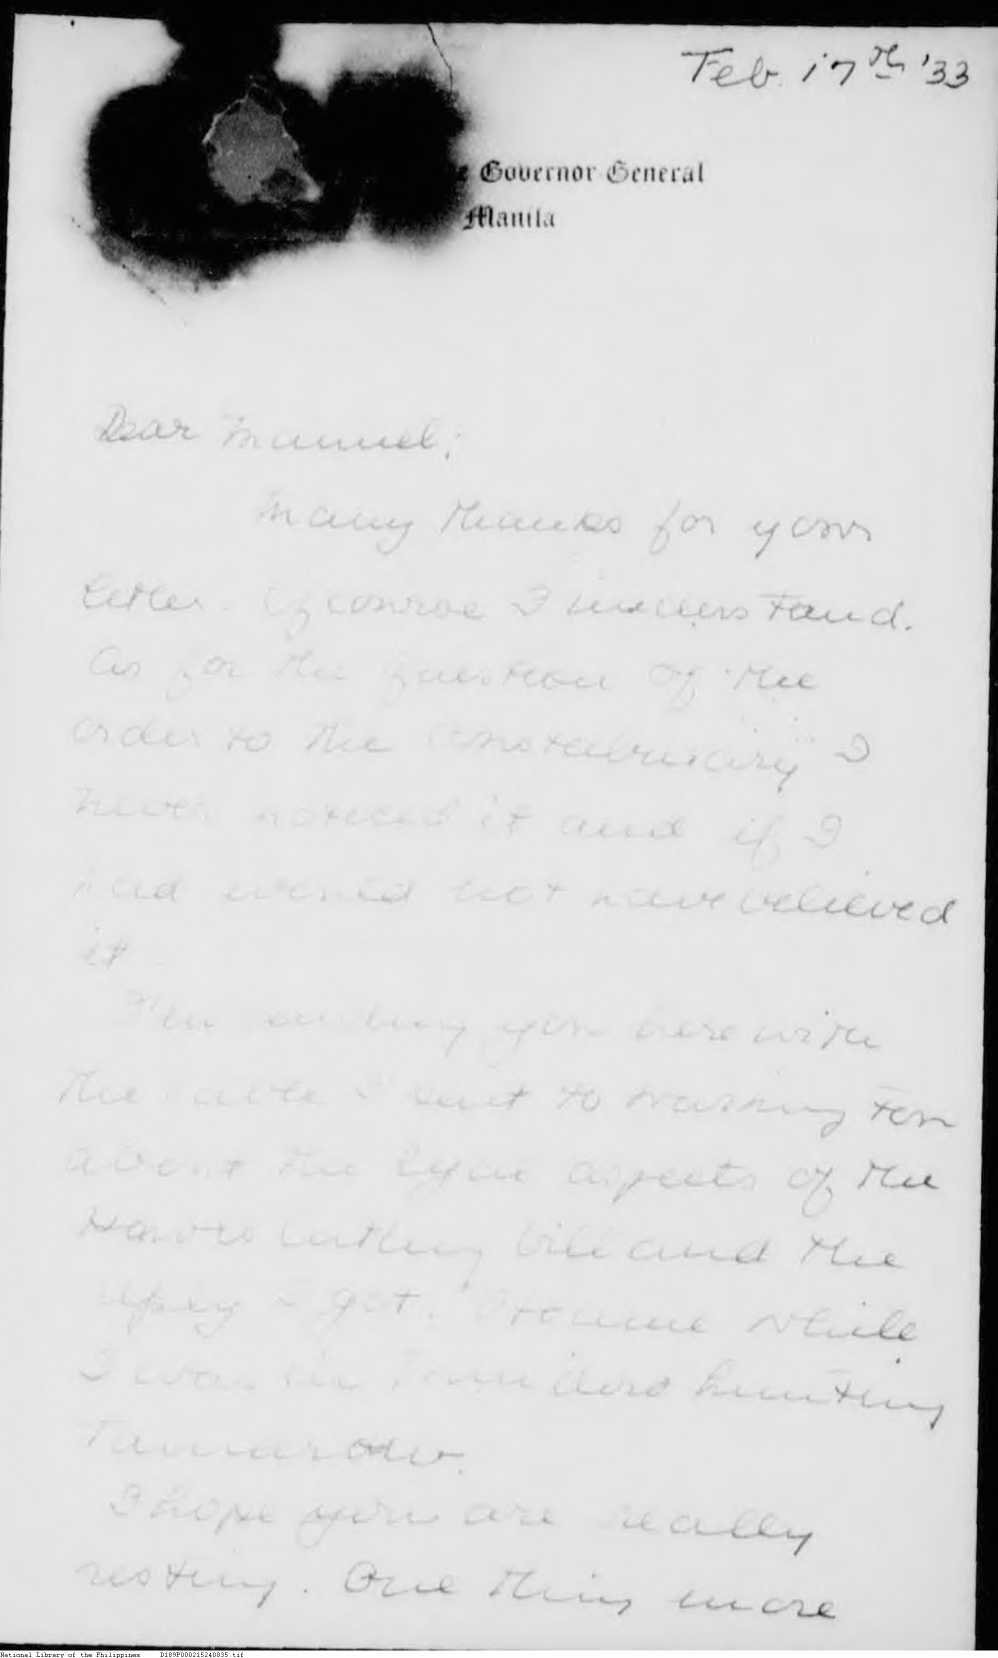 Feb. 17th '33
Governor General
Manila
Dear Manuel;
Many thanks for your
letter. Of course I understand.
As for the question of the
order to the Constabulary I
never noticed it and if I
had would not have believed
it
I'm sending you here with
the cable I sent to Washington
about the legal aspects of the
Hawes Cutting bill and the
reply I got. It came while
I was in Mindoro hunting
Tamarow.
I hope you are really
resting. One thing more
National Library of the Philippines D189P000215240835.tif